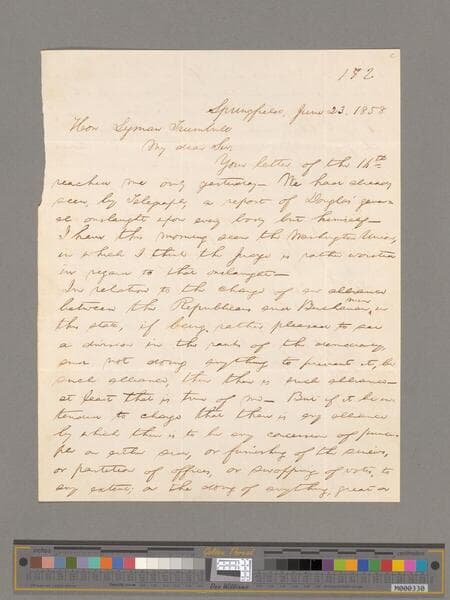 182
Springfield, June 23, 1858
Hon. Lyman Trumbull
My dear Sir:
Your letter of the 16th
reached me only yesterday— We had already
seen, by Telegraph, a report of Douglas' gener-
al onslaught upon every body but himself—
I have this morning seen the Washington Union,
in which I think the Judge is rather worsted
in regard to that onslaught—
In relation to the charge of an alliance
between the Republicans and Buchanan men in
this state, if being rather pleased to see
a division in the ranks of the democracy,
and not doing anything to prevent it, be
such alliance, then there is such alliance—
at least that is true of me— But if it be in
tended to charge that there is any alliance
by which there is to be any concession of princi-
ple on either side, or furnishing of the sinews,
or partition of offices, or swopping of votes, to
any extent; or the doing of anything, great or
inches
centimetres
M000330